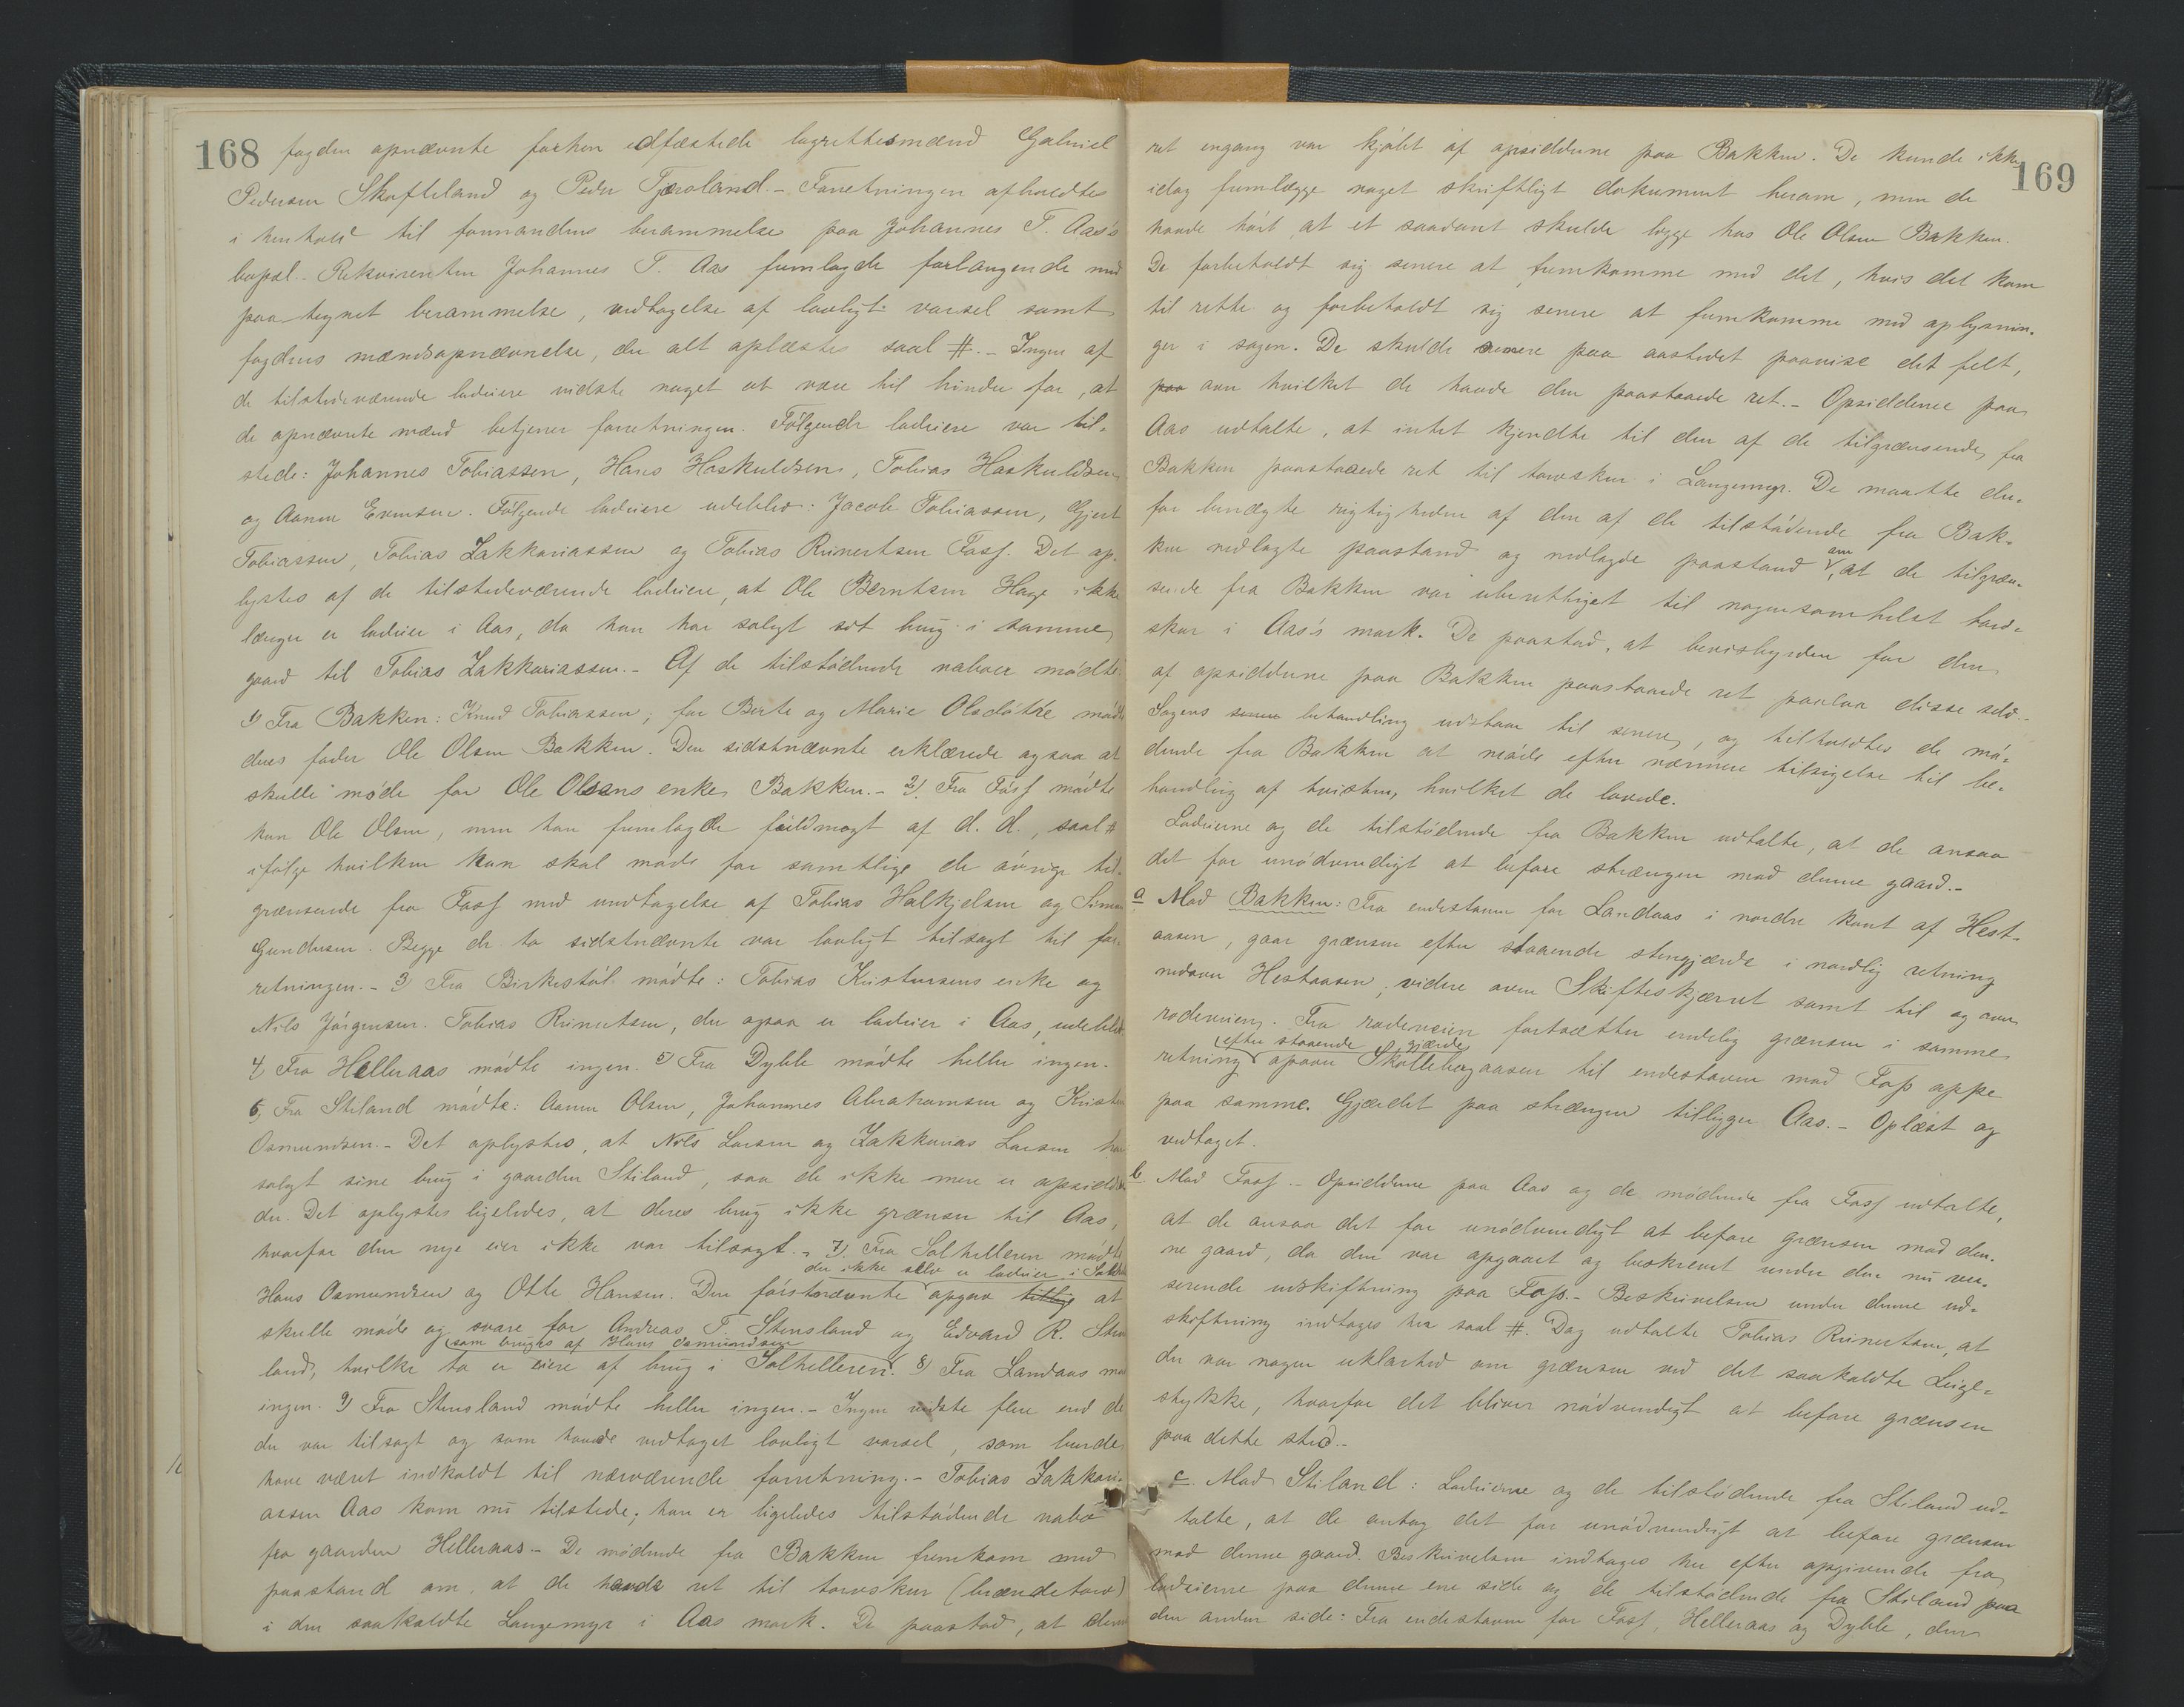 168
fogden opnævnte forhen edfæstede lagrettesmænd Gabriel
Pedersen Skofteland og Peder Tjæroland. – Forretningen afholdtes
i henhold til formandens berammelse paa Johannes T. Aas's
bopæl. – Rekvirenten Johannes T. Aas fremlagde forlangende med
paategnet berammelse, vedtagelse af lovligt varsel samt
fogdens mændsopnævnelse, der alt oplæstes saal #. – Ingen af
de tilstedeværende lodeiere vidste noget at være til hinder for, at
de opnævnte mænd betjener forretningen. Følgende lodeiere var til-
stede: Johannes Tobiassen, Hans Haskuldsen, Tobias Haskuldsen
og Aanen Evensen. Følgende lodeiere udeblev: Jacob Tobiassen, Gjert
Tobiassen, Tobias Zakkariassen og Tobias Reinertsen Foss. Det op-
lystes af de tilstedeværende lodeiere, at Ole Berntsen Hage ikke
længer er lodeier i Aas, da han har solgt sit brug i samme
gaard til Tobias Zakkariassen. – Af de tilstødende naboer mødte:
1) Fra Bakken: Knud Tobiassen; for Berte og Marie Olsdøtre mødte
deres fader Ole Olsen Bakken. Den sidstnævnte erklærede ogsaa at
skulle møde for Ole Olsens enke Bakken. – 2) Fra Foss mødte
kun Ole Olsen, men han fremlagde fuldmagt af d. d., saal #
ifølge hvilken han skal møde for samtlige de øvrige til-
grænsende fra Foss med undtagelse af Tobias Halkjelsen og Simon
Gundersen. Begge de to sidstnævnte var lovligt tilsagt til for-
retningen. – 3) Fra Birkestøl mødte: Tobias Kristensens enke og
Nils Jørgensen. Tobias Reinertsen, der ogsaa er lodeier i Aas, udeblev
4) Fra Helleraas mødte ingen. 5) Fra Dyble mødte heller ingen.
6) Fra Stiland mødte: Aanen Olsen, Johannes Abrahamsen og Kristen
Osmundsen. – Det oplystes, at Nils Larsen og Zakkarias Larsen har
solgt sine brug i gaarden Stiland, saa de ikke mere er opsiddere
der. Det oplystes ligeledes, at deres brug ikke grænser til Aas,
hvorfor den nye eier ikke var tilsagt. – 7) Fra Solhelleren mødte
der ikke selv er lodeier i Solh
Hans Osmundsen og Otte Hansen. Den førstnævnte opgav tillige at
skulle møde og svare for Andreas T. Stensland og Edvard R. Stens
som bruges af Hans Osmundsen
land, hvilke to er eiere af brug i Solhelleren. 8) Fra Landaas mødte
ingen. 9) Fra Stensland mødte heller ingen. – Ingen vidste flere end de
der var tilsagt og som havde vedtaget lovligt varsel, som burde
have været indkaldt til nærværende forretning. – Tobias Zakkari-
assen Aas kom nu tilstede; han er ligeledes tilstødende nabo
fra gaarden Helleraas. – De mødende fra Bakken fremkom med
paastand om, at de havde ret til torvskur (brændetorv)
i den saakaldte Langemyr i Aas mark. De paastod, at denne
169
ret engang var kjøbt af opsidderne paa Bakken. De kunde ikke
idag fremlægge noget skriftligt dokument herom, men de
havde hørt, at et saadant skulde ligge hos Ole Olsen Bakken.
De forbeholdt sig senere at fremkomme med det, hvis det kom
til rette og forbeholdt sig senere at fremkomme med oplysnin-
ger i sagen. De skulde senere paa aastedet paavise det felt,
paa om hvilket de havde den paastaaede ret. – Opsidderne paa
Aas udtalte, at intet kjendte til den af de tilgrænsende fra
Bakken paastaaede ret til torvskur i Langemyr. De maatte der-
for benægte rigtigheden af den af de tilstødende fra Bak-
ken nedlagte paastand og nedlagde paastand om, at de tilgræn-
sende fra Bakken var uberettiget til nogensomhelst torv-
skur i Aas's mark. De paastod, at bevisbyrden for den
af opsidderne paa Bakken paastaaede ret paalaa disse selv. –
Sagens senere behandling udstaar til senere, og tilholdtes de mø-
dende fra Bakken at møde efter nærmere tilsigelse til be-
handling af tvisten, hvilket de lovede.
Lodeierne og de tilstødende fra Bakken udtalte, at de ansaa
det for unødvendigt at befare strængen mod denne gaard. –
a Mod Bakken: Fra endestenen for Landaas i nordre kant af Hest-
aasen, gaar grænsen efter staaende stengjærde i nordlig retning
nedover Hestaasen, videre over Skifteskjærret samt til og over
rodeveien. Fra rodeveien fortsætter endelig grænsen i samme
efter staaende gjærde
retning opover Skollebergaasen til endestenen mod Foss oppe
paa samme. Gjærdet paa strængen tilligger Aas. – Oplæst og
vedtaget.
b. Mod Foss. – Opsidderne paa Aas og de mødende fra Foss udtalte,
at de ansaa det for unødvendigt at befare grænsen mod den-
ne gaard, da den var opgaaet og beskrevet under den nu ver-
serende udskiftning paa Foss. – Beskrivelsen under denne ud-
skiftning indtages her saal #. Dog udtalte Tobias Reinertsen, at
der var nogen uklarhed om grænsen ved det saakaldte Leige-
stykke, hvorfor det bliver nødvendigt at befare grænsen
paa dette sted. –
c. Mod Stiland: Lodeierne og de tilstødende fra Stiland ud-
talte, at de antog det for unødvendigt at befare grænsen
mod denne gaard. Beskrivelsen indtages her efter opgivende fra
lodeierne paa denne ene side og de tilstødende fra Stiland paa
den anden side: Fra endestenen for Foss, Helleraas og Dyble, den